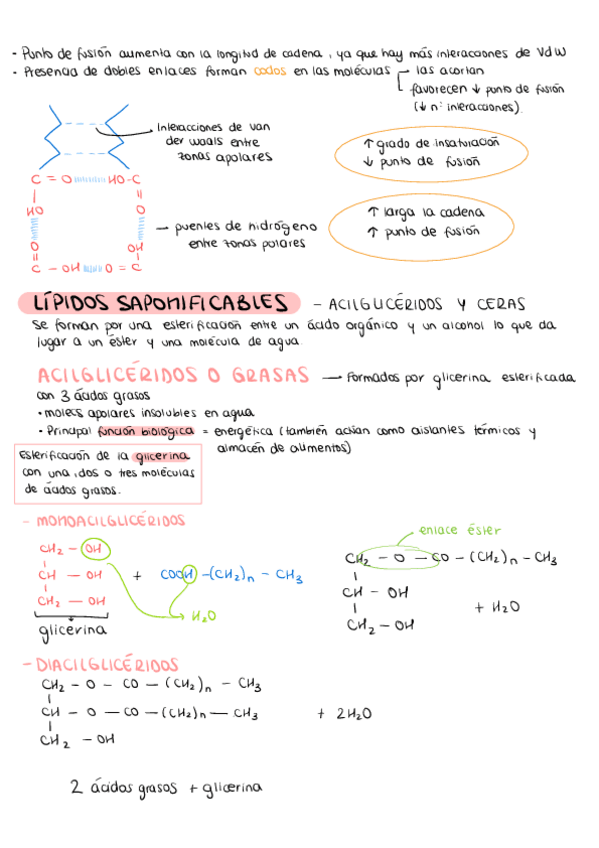 - Punto de fusión aumenta con la longitud de cadena, ya que hay más interacciones de VdW
- Presencia de dobles enlaces forman codos en las moléculas — las acortan
favorecen ↓ punto de fusión
(↓ n: interacciones).
Interacciones de van
der waals entre
zonas apolares
↑ grado de insaturación
↓ punto de fusión
C = O HO-C
HO O
O OH
C - OH O = C
— puentes de hidrógeno
entre zonas polares
↑ larga la cadena
↑ punto de fusión
LÍPIDOS SAPONIFICABLES - ACILGLICÉRIDOS Y CERAS
Se forman por una esterificación entre un ácido orgánico y un alcohol lo que da
lugar a un éster y una molécula de agua.
ACILGLICÉRIDOS O GRASAS — Formados por glicerina esterificada
con 3 ácidos grasos
• molecs apolares insolubles en agua
• Principal función biológica = energética (también actúan como aislantes térmicos y
almacén de alimentos)
Esterificación de la glicerina
con una, dos o tres moléculas
de ácidos grasos.
- MONOACILGLICÉRIDOS
CH2 - OH
CH - OH + COOH -(CH2)n - CH3
CH2 - OH
H2O
glicerina
enlace éster
CH2 - O - CO - (CH2)n - CH3
CH - OH
+ H2O
CH2 - OH
- DIACILGLICÉRIDOS
CH2 - O - CO - (CH2)n - CH3
CH - O - CO - (CH2)n - CH3 + 2H2O
CH2 - OH
2 ácidos grasos + glicerina